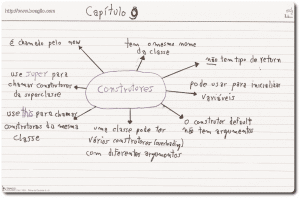 Capítulo 9
é chamado pelo new
tem o mesmo nome
da classe
não tem tipo de return
use super para
chamar construtores
da superclasse
construtores
pode usar para inicializar
variáveis
use this para chamar
construtores da mesma
classe
uma classe pode ter
vários construtores (overload)
com diferentes argumentos
o construtor default
não tem argumentos